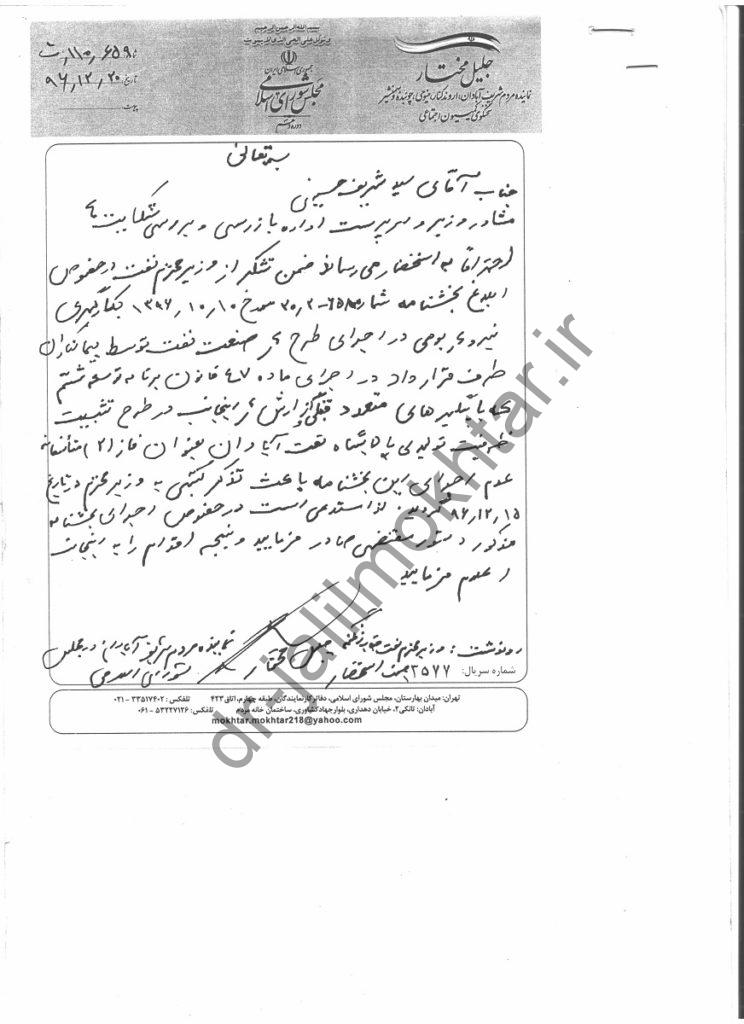 بسم الله الرحمن الرحیم
جمهوری اسلامی ایران
مجلس شورای اسلامی
دوره دهم
جلیل مختار
نماینده مردم شریف آبادان، اروندکنار، مینوی، چوئبده و
سخنگوی کمیسیون اجتماعی
۱۱۰٫۶۵۹
تاریخ: ۹۶٫۱۲٫۲۰
پیوست:
بسمه تعالی
جناب آقای سید شریف حسینی
مشاور وزیر و سرپرست اداره بازرسی و بررسی شکایت ها
احتراماً به استحضار می رساند ضمن تشکر از وزیر محترم نفت در خصوص
ابلاغ بخشنامه شماره مورخ ۱۳۹۶٫۱۰٫۱۰ بکارگیری
نیروی بومی در اجرای طرح های صنعت نفت توسط پیمانکاران
طرف قرارداد در اجرای ماده ۴۷ قانون برنامه توسعه ششم
که با پیگیری های متعدد قبلی گزارش اینجانب در طرح تثبیت
ظرفیت تولیدی پالایشگاه نفت آبادان بعنوان فاز (۲) متأسفانه
عدم اجرای این بخشنامه باعث تذکر کتبی به وزیر محترم در تاریخ
۹۶٫۱۲٫۱۵ گردید. لذا مستدعی است در خصوص اجرای بخشنامه
مذکور دستور مقتضی صادر فرمایید و نتیجه اقدام را به اینجانب
اعلام فرمایید
جلیل مختار
نماینده مردم شریف آبادان در مجلس
شورای اسلامی
رونوشت: وزیر محترم نفت جهت استحضار
شماره سریال: ۳۵۷۷
تهران: میدان بهارستان، مجلس شورای اسلامی، دفاتر کار نمایندگان، طبقه چهارم، اتاق ۴۲۳ تلفکس: ۳۳۵۱۷۴۰۲ - ۰۲۱
آبادان: تانکی۲، خیابان دهداری، بلوار جهاد کشاورزی، ساختمان خانه مردم تلفکس: ۵۳۲۲۷۱۲۶ - ۰۶۱
mokhtar.mokhtar218@yahoo.com
dr-jalilmokhtar.ir